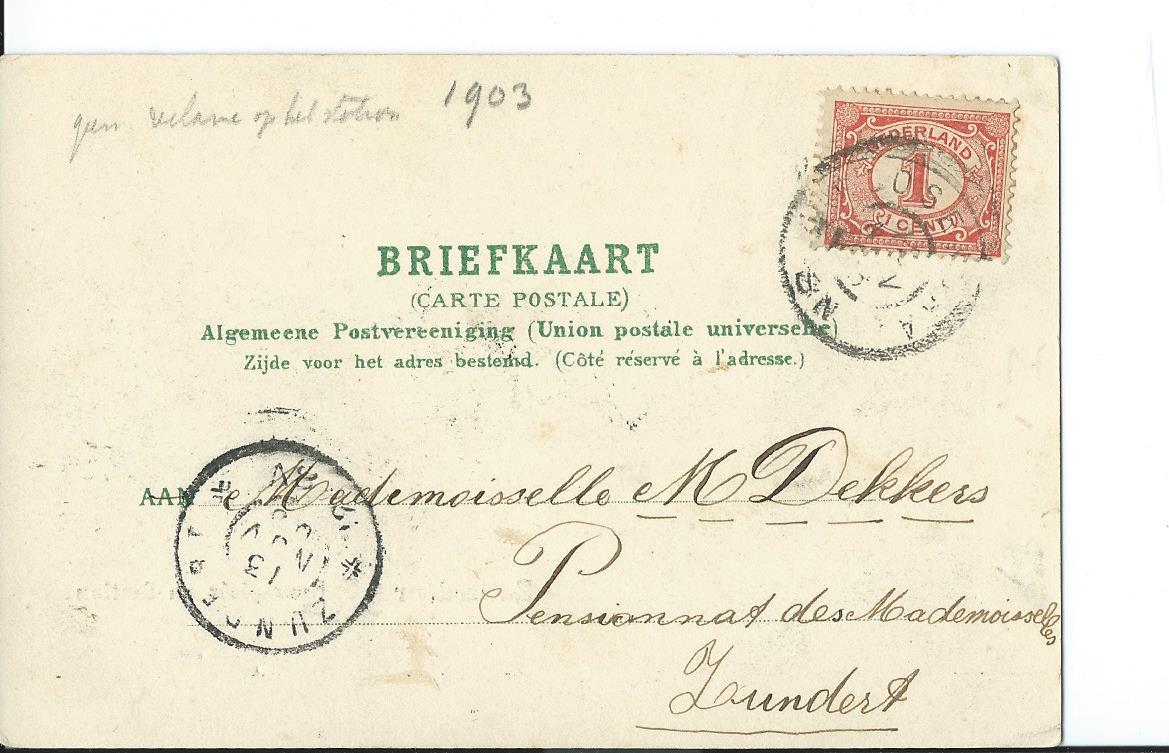 op het station 1903
NEDERLAND
1
1 CENT
BRIEFKAART
(CARTE POSTALE)
Algemeene Postvereeniging (Union postale universelle)
Zijde voor het adres bestemd. (Côté réservé à l'adresse.)
AAN Mademoisselle M Dekkers
Pensionnat des Mademoisselles
Zundert
ZUNDERT